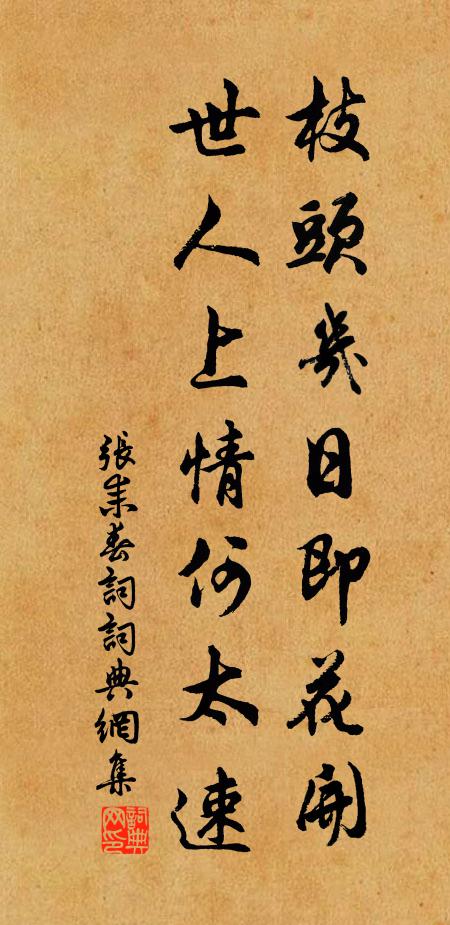 枝頭幾日即花開
世人上情何太速
張耒春詞詞典網集
詞典網印